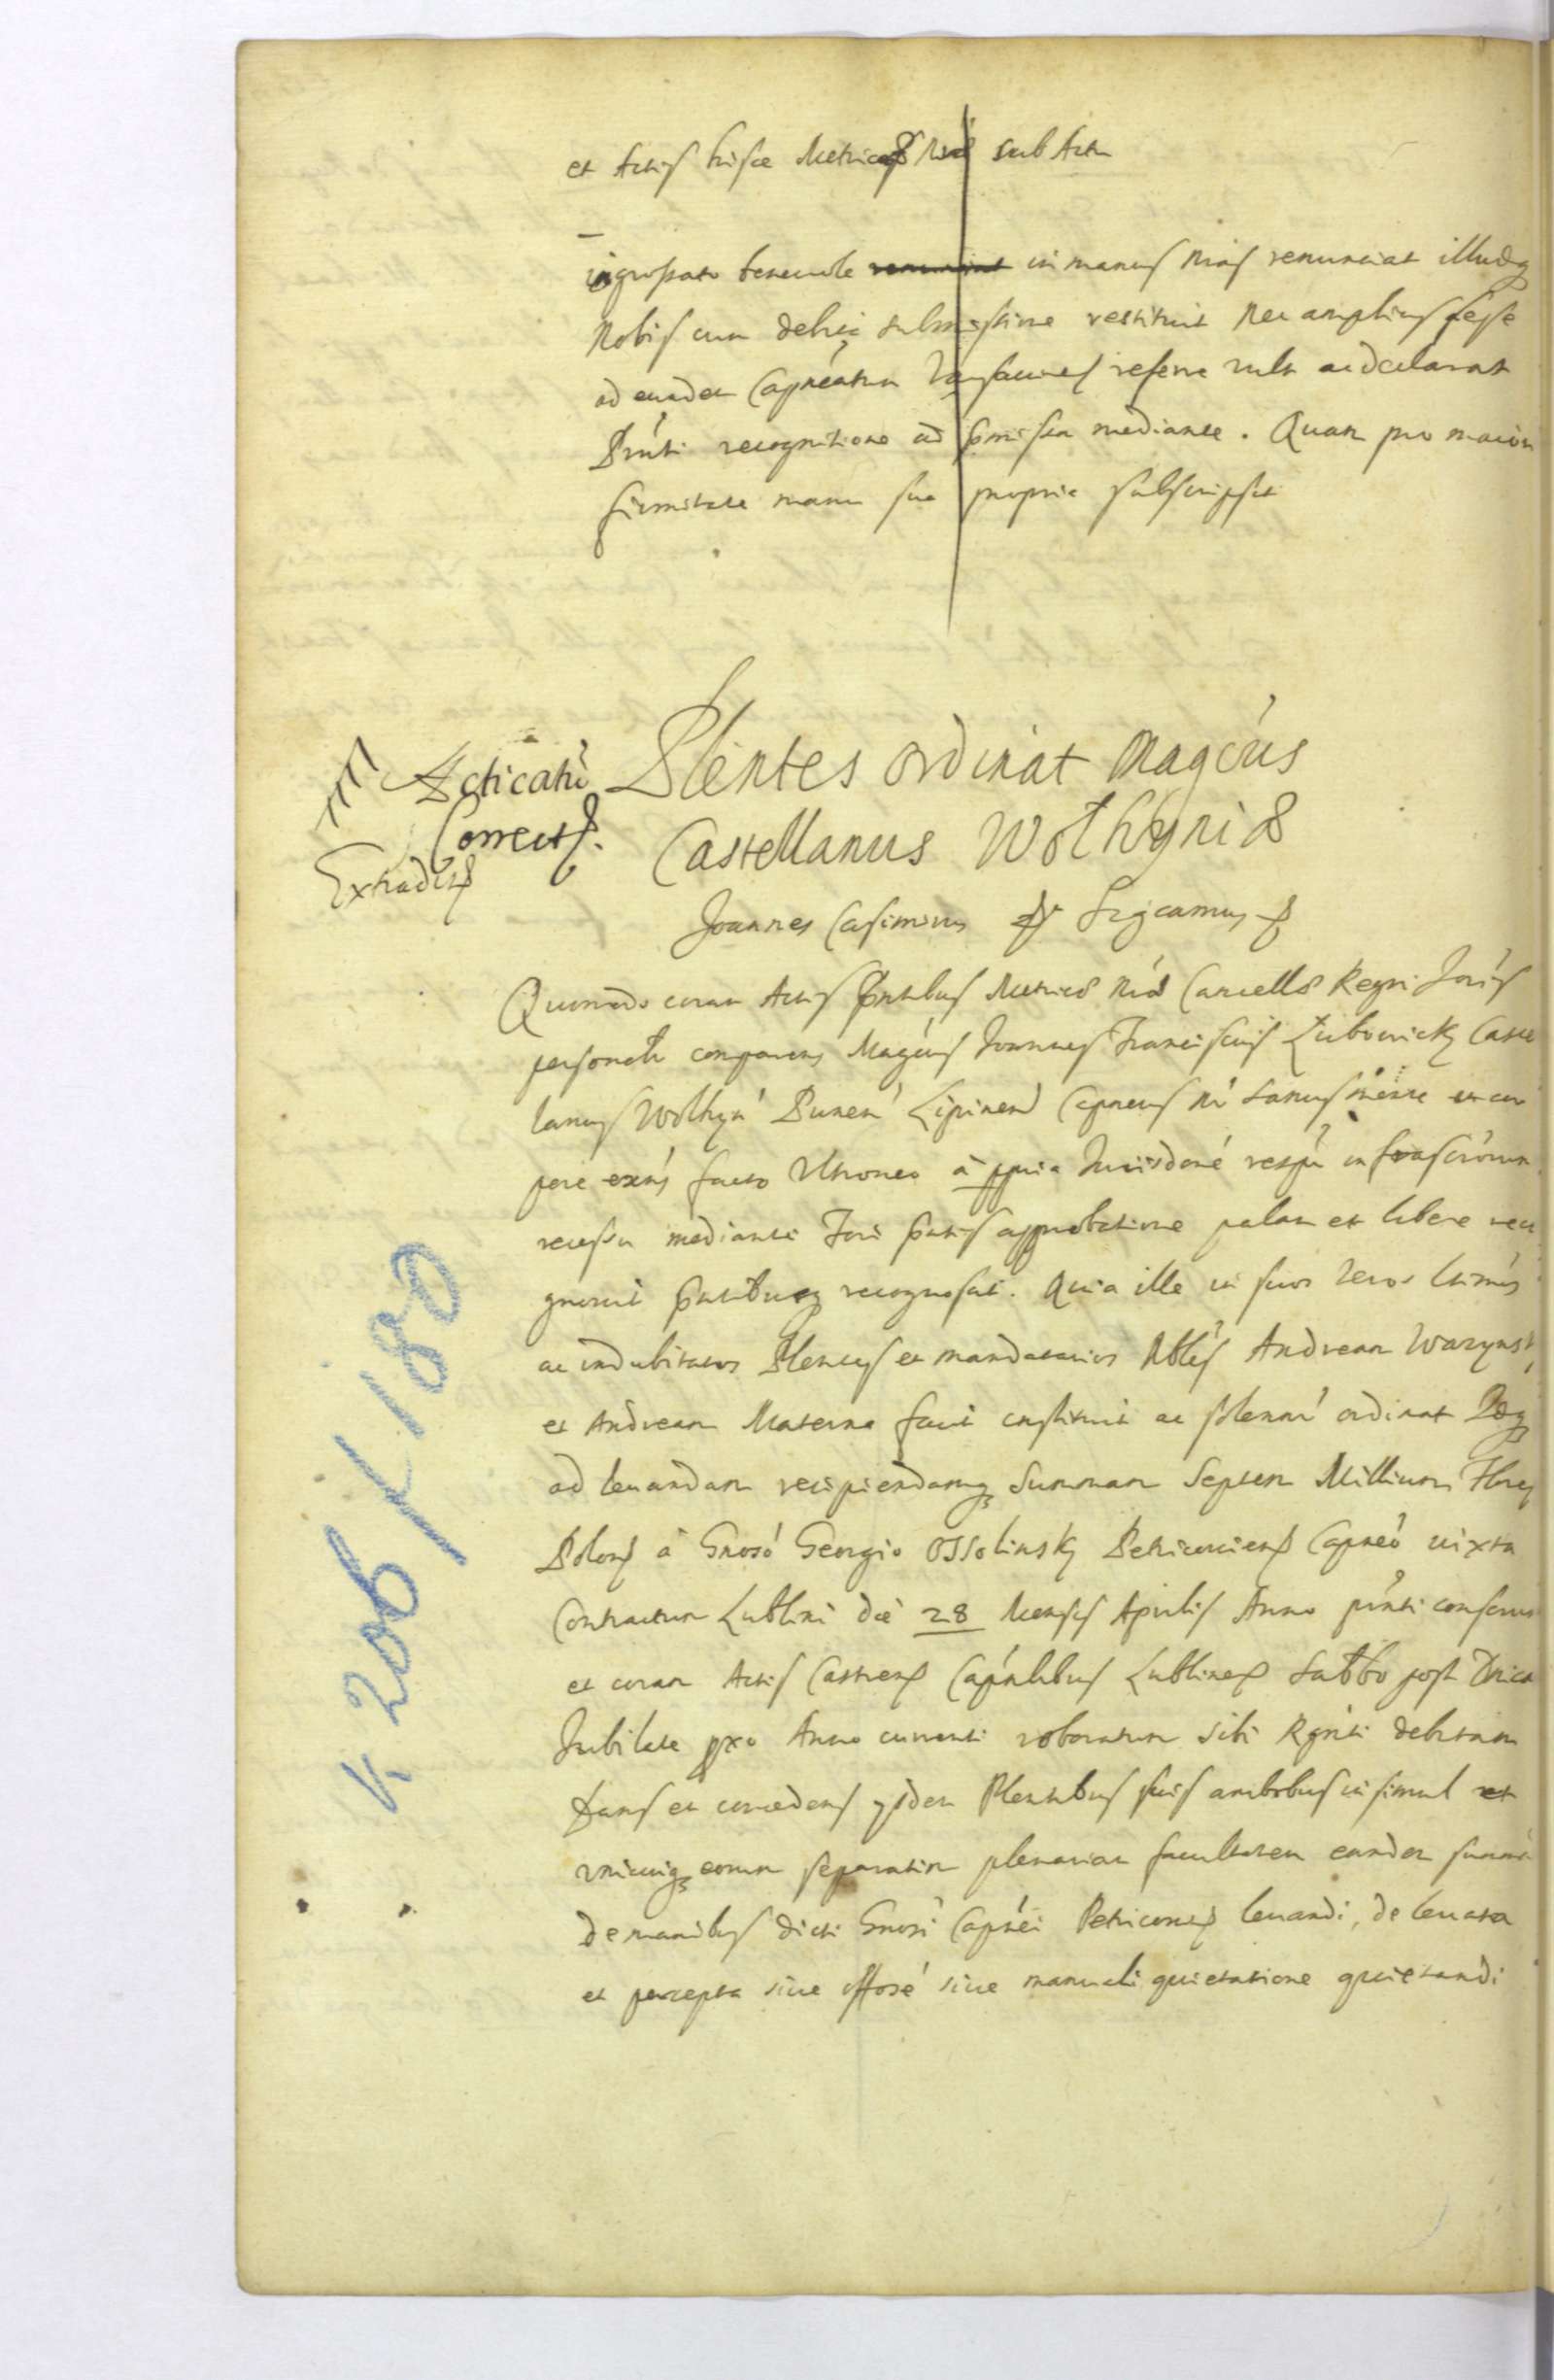 et Actis hisce Metrices Nrae sub Actu
ingrossato beneuole in manus Nras renunciat illudq
Nobis cum debita submissione restituit nec amplius sese
ad eundem Capneatum referre vult ac declarat
Pnti recognitione ad pmissa mediante. Quam pro maiori
firmitate manu sua propria subscripsit
Acticatũ Plentes ordinat Magcus
Correcta. Castellanus Wolhyniae
Extradita
Joannes Casimirus Sigcamus
Quomodo coram Actis pntibus Metrices Nrae Cancellae Regni Joris
personalr comparens Magcus Joannes Franciscus Lubowicky Caste
lanus Wolhyn Punen Lipinen Capneus Nr sanus mente et cor
pore exñs facto vltroneo à ppria Jurisdone respu infrascrorum
recessu mediante Fori pntis approbatione palam et libere reco
gnouit pntibusq recognoscit. Quia ille in suos veros ltimos
ac indubitatos Plentes et mandatarios Nbles Andream Warynsk
et Andream Materna fecit constituit ac solennr ordinat
ad leuandam recipiendamq Summam Septem Millium Flnor
Polon à Gnoso Georgio Ossolinsky Petricouien Capneo iuxta
Contractum Lublini die 28 Mensis Aprilis Anno pnti
et coram Actis Castren Capnlibus Lublinen Sabbo post Dnica
Jubilate pxo Anno currenti roboratum sibi Rgnti debitam
Dans et concedens ijsdem Plentibus suis ambobus insimul et
vnicuiq eorum separatim plenariam facultatem eandem summã
de manibus dicti Gnosi Capnei Petricouien leuandi, de leuata
et percepta siue offose siue manuali quietatione quietandi
V. 206/180